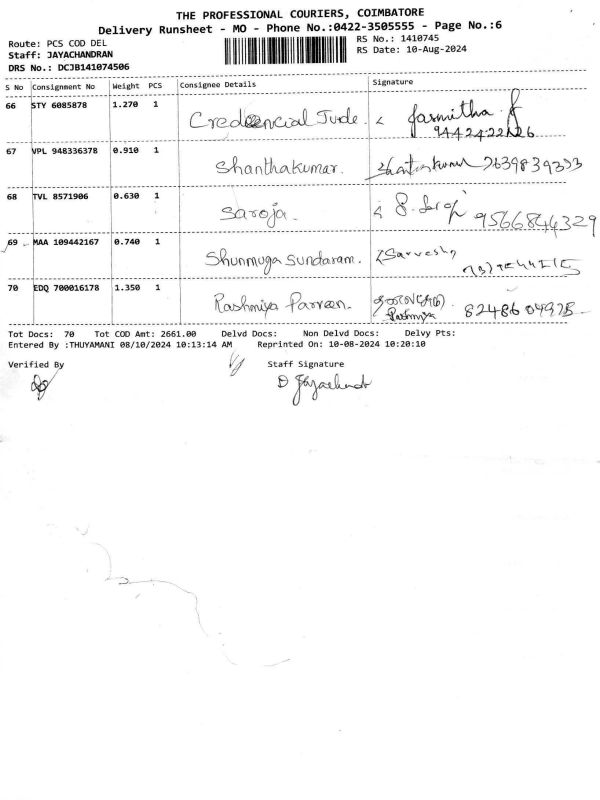 THE PROFESSIONAL COURIERS, COIMBATORE
Delivery Runsheet - MO - Phone No.:0422-3505555 - Page No.:6
Route: PCS COD DEL
RS No.: 1410745
Staff: JAYACHANDRAN
RS Date: 10-Aug-2024
DRS No.: DCJB141074506
S No Consignment No Weight PCS Consignee Details Signature
66 STY 6085878 1.270 1 Jasmitha
67 VPL 948336378 0.910 1 Shanthakumar. 7639839333
68 TVL 8571906 0.630 1 Saroja. 9566844329
69 MAA 109442167 0.740 1 Shunmuga Sundaram. Sarvesh
70 EDQ 700016178 1.350 1 Rashmiya Parveen.
Rashmiya
Tot Docs: 70 Tot COD Amt: 2661.00 Delvd Docs: Non Delvd Docs: Delvy Pts:
Entered By :THUYAMANI 08/10/2024 10:13:14 AM Reprinted On: 10-08-2024 10:20:10
Verified By Staff Signature